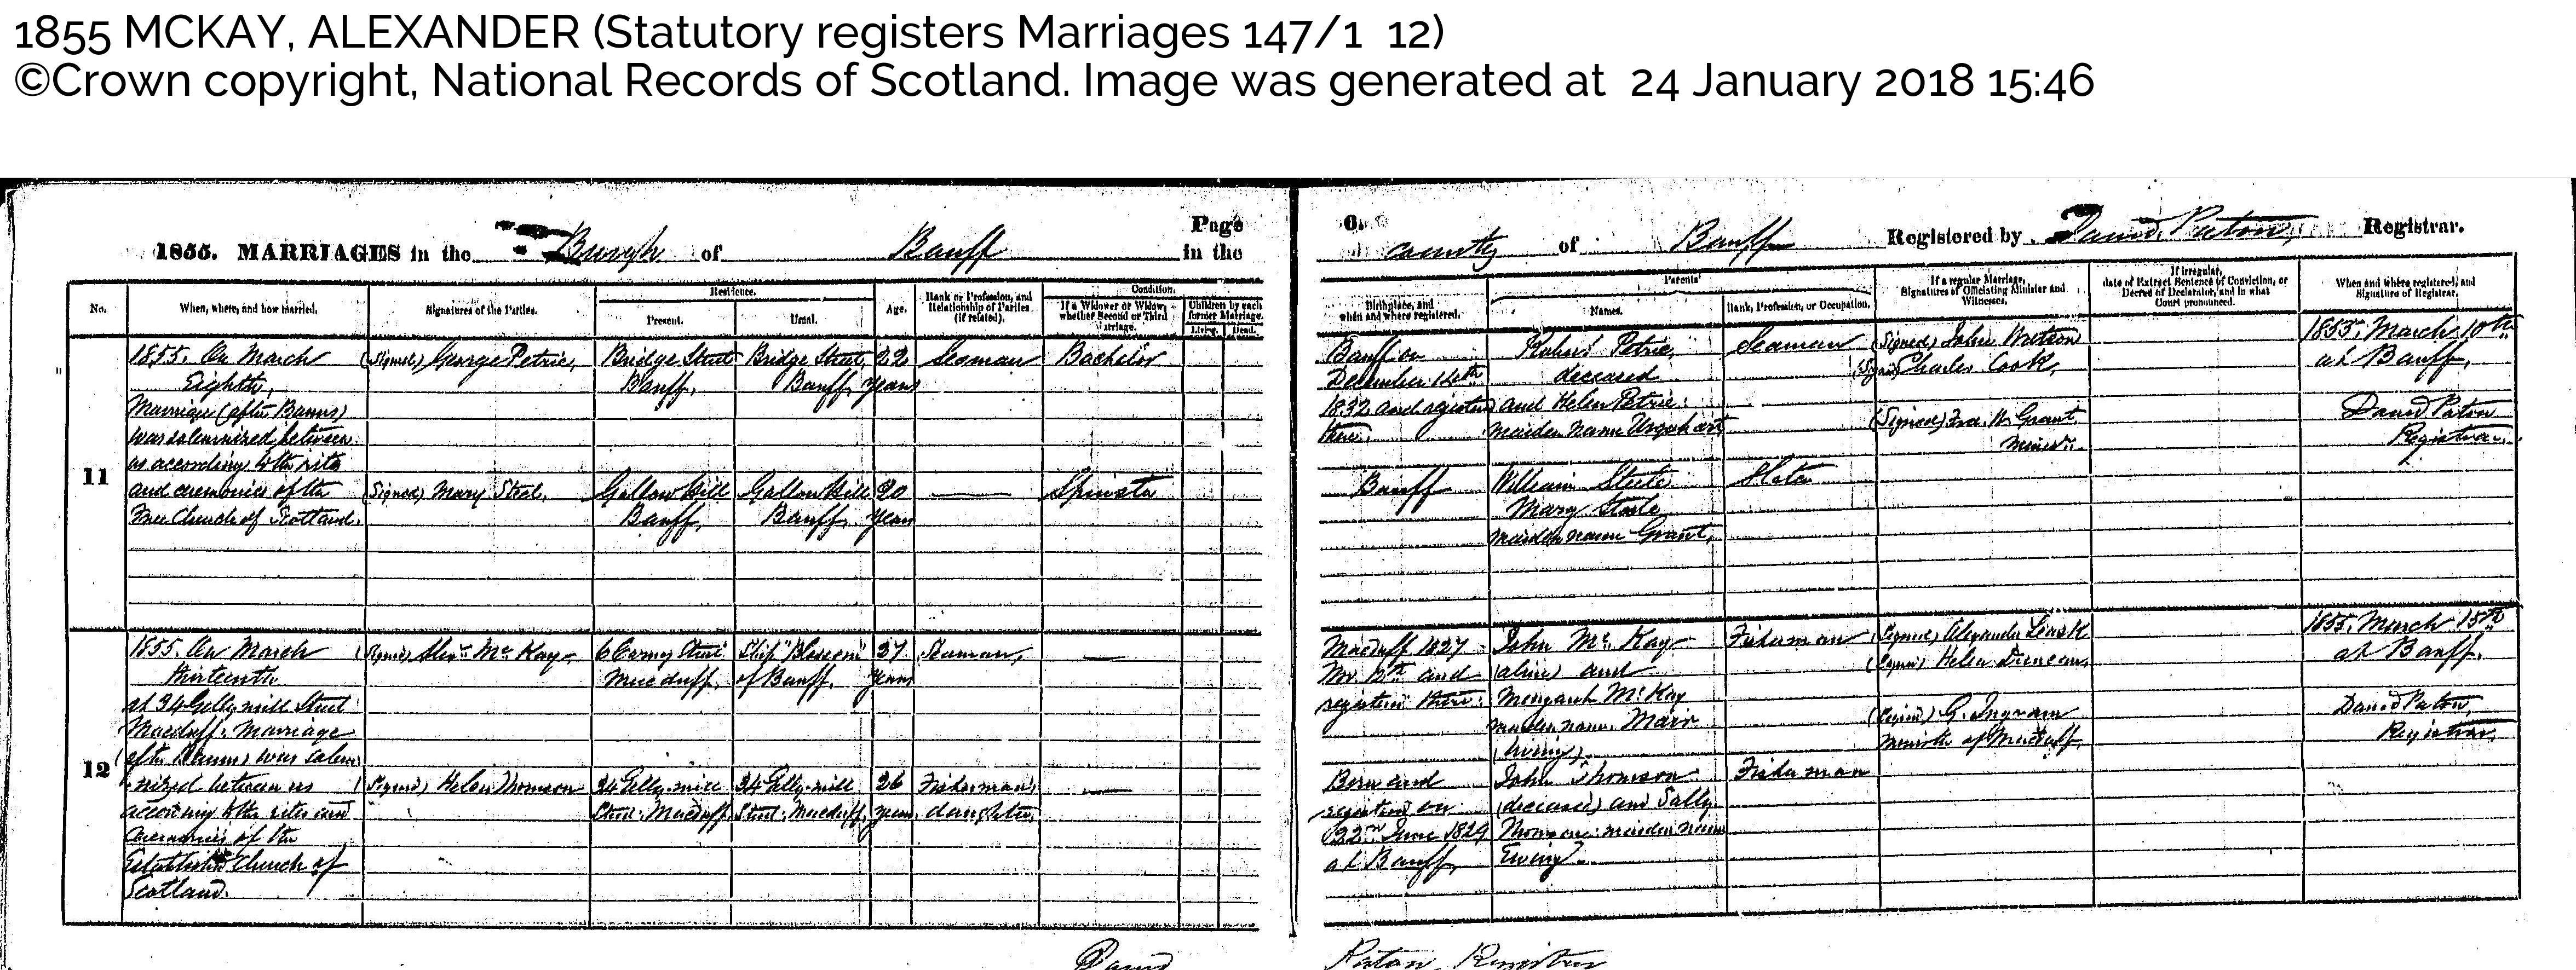 1855 MCKAY, ALEXANDER (Statutory registers Marriages 147/1 12)
©Crown copyright, National Records of Scotland. Image was generated at 24 January 2018 15:46
1855. MARRIAGES in the Burgh of Banff
Page in the
6.
county of Banff Registered by David Paton, Registrar.
No.
When, where, and how married.
Signatures of the Parties.
Residence.
Present.
Usual.
Age.
Rank or Profession, and
Relationship of Parties
(if related).
Condition.
If a Widower or Widow,
whether Second or Third
Marriage.
Children by each
former Marriage.
Living. Dead.
Birthplace, and
when and where registered.
Parents'
Names.
Rank, Profession, or Occupation.
If a regular Marriage,
Signatures of Officiating Minister and
Witnesses.
If irregular,
date of Extract Sentence of Conviction, or
Decree of Declarator, and in what
Court pronounced.
When and where registered, and
Signature of Registrar.
11
1855. On March
Eighth,
Marriage (after Banns)
was solemnized between
us according to the rites
and ceremonies of the
Free Church of Scotland.
(Signed) George Petrie,
Bridge Street
Banff,
Bridge Street,
Banff,
22
years
Seaman
Bachelor
Banff on
December 14th
1832 and registered
there.
Robert Petrie,
deceased
and Helen Petrie:
maiden name Urquhart
Seaman
(Signed) John Watson
(Signed) Charles Cook,
(Signed) Fra. W. Grant
Minr.
1855. March 10th
at Banff,
David Paton
Registrar.
(Signed) Mary Steel,
Gallowhill
Banff,
Gallowhill
Banff,
20
years
Spinster
Banff
William Steele
Mary Steele
maiden name Grant,
Slater
12
1855. On March
thirteenth
at 24 Gelly mill Street
Macduff. Marriage
(after Banns) was solem
nized between us
according to the rites and
ceremonies of the
Established Church of
Scotland.
(Signed) Alexr. Mc Kay
6 Street
Macduff,
Ship "Blossom"
of Banff.
27
years
Seaman,
Macduff 1827
Nov. and
registered there.
John Mc Kay
(alive) and
Margaret Mc Kay
maiden name Mair
(living).
Fisherman
(Signed) Alexander Leask
(Signed) Helen Duncan,
(Signed) G. Ingram
Minister of Macduff.
1855. March 15th
at Banff.
David Paton,
Registrar.
(Signed) Helen Thomson
24 Gelly-mill
Street. Macduff
24 Gelly-mill
Street. Macduff,
26
years
Fisherman's
daughter,
Born and
registered on
22nd June 1829
at Banff,
John Thomson
(deceased) and Sally
Thomson: maiden name
Ewing.
Fisherman
David
Paton, Registrar